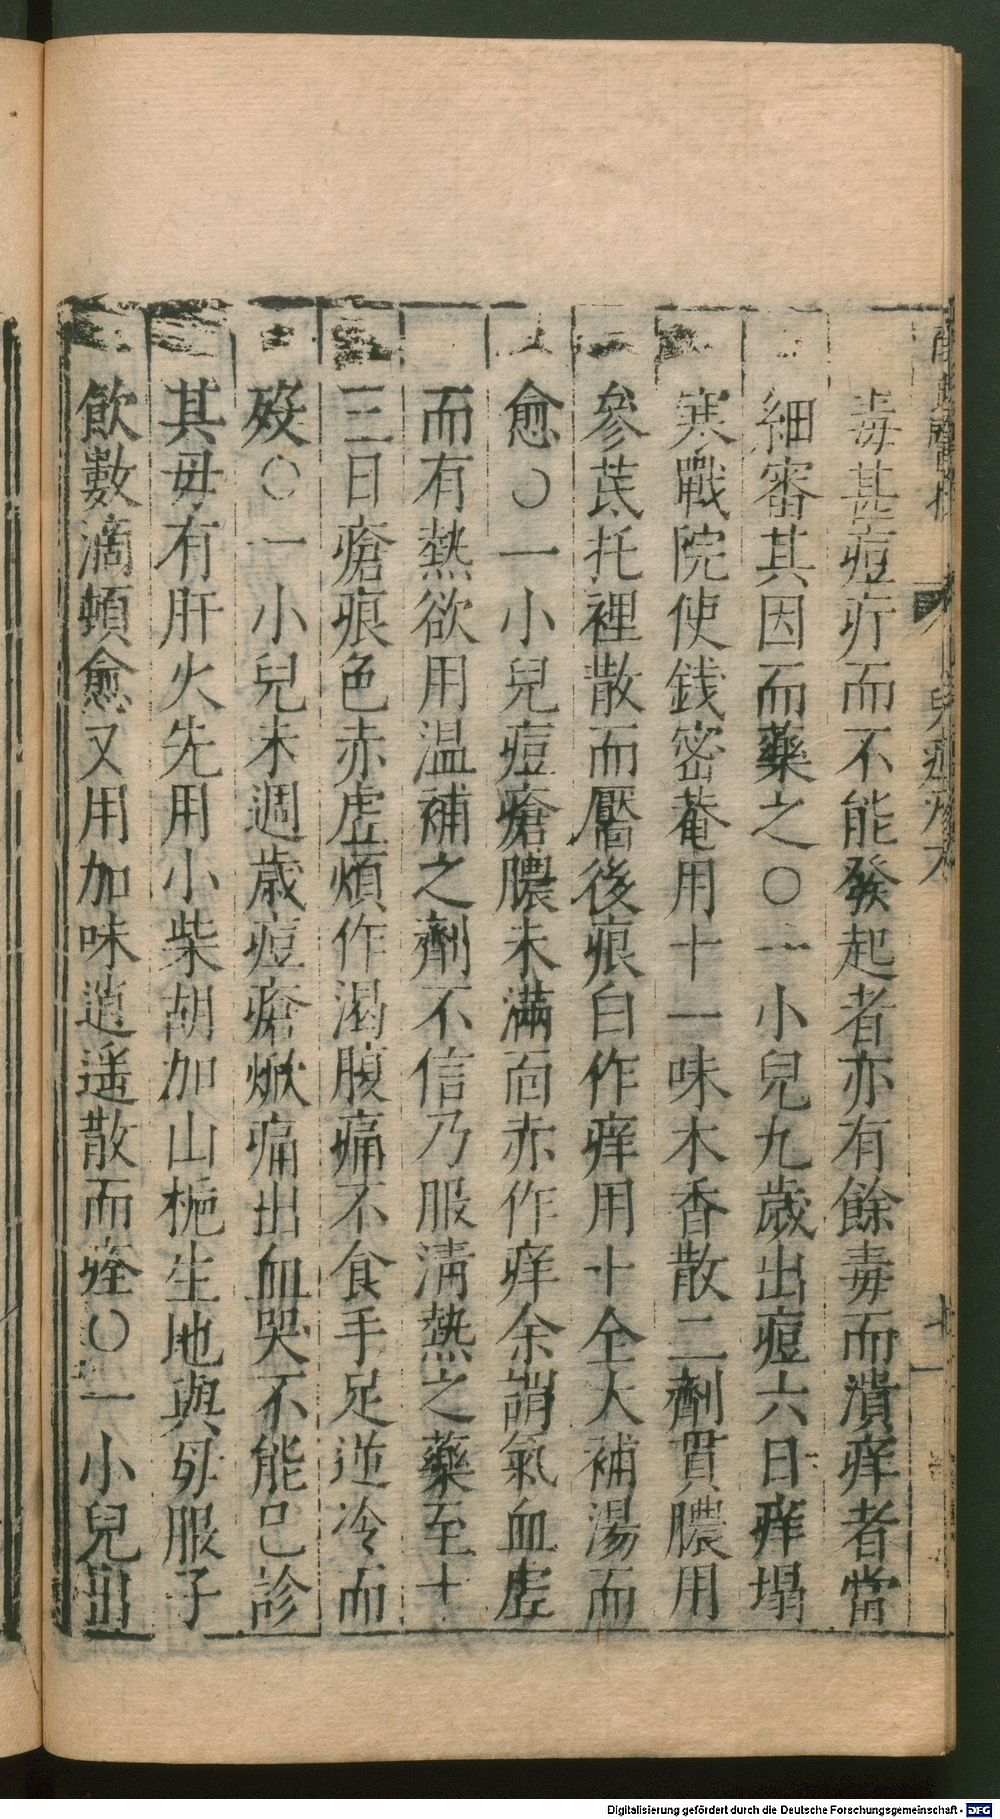 毒甚痘疔而不能發起者亦有餘毒而潰痒者當
細審其因而藥之○一小兒九歲出痘六日痒塌
寒戰院使錢密菴用十一味木香散二劑貫膿用
參芪托裡散而靨後痕白作痒用十全大補湯而
愈○一小兒痘瘡膿未滿面赤作痒余謂氣血虛
而有熱欲用温補之劑不信乃服清熱之藥至十
三日瘡痕色赤虛煩作渴腹痛不食手足逆冷而
殁○一小兒未週歲痘瘡焮痛出血哭不能已診
其母有肝火先用小柴胡加山梔生地與母服子
飲數滴頓愈又用加味逍遥散而痊○一小兒出
Digitalisierung gefördert durch die Deutsche Forschungsgemeinschaft - DFG